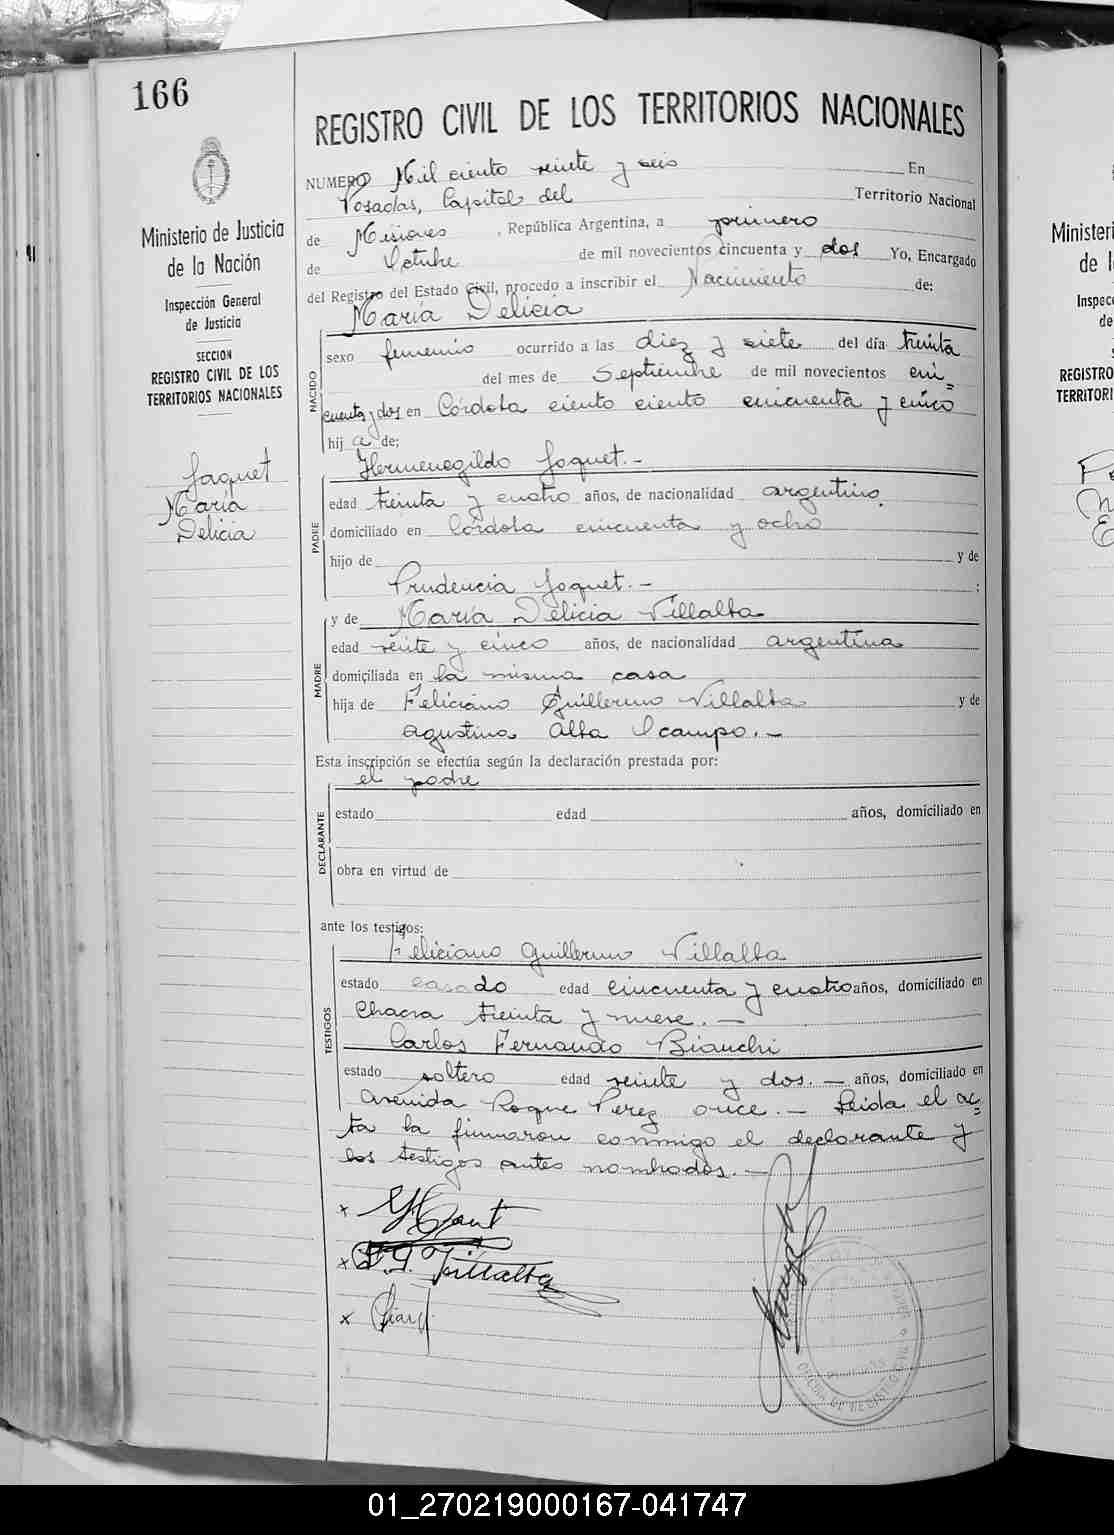 166
Ministerio de Justicia
de la Nación
Inspección General
de Justicia
SECCION
REGISTRO CIVIL DE LOS
TERRITORIOS NACIONALES
Jaquet
María
Delicia
REGISTRO CIVIL DE LOS TERRITORIOS NACIONALES
NUMERO Mil ciento veinte y seis En
Posadas, Capital del Territorio Nacional
de Misiones, República Argentina, a primero
de Octubre de mil novecientos cincuenta y dos Yo, Encargado
del Registro del Estado Civil, procedo a inscribir el Nacimiento de:
María Delicia
NACIDO
sexo femenino ocurrido a las diez y siete del día treinta
del mes de Septiembre de mil novecientos cin=
cuenta y dos en Córdoba ciento ciento cincuenta y cinco
hij a de:
Hermenegildo Jaquet.-
PADRE
edad treinta y cuatro años, de nacionalidad argentino.
domiciliado en Córdoba cincuenta y ocho
hijo de y de
Prudencia Jaquet.- ;
y de María Delicia Villalba
MADRE
edad veinte y cinco años, de nacionalidad argentina
domiciliada en la misma casa
hija de Feliciano Guillermo Villalba y de
Agustina Alba Ocampo.-
Esta inscripción se efectúa según la declaración prestada por:
el padre
DECLARANTE
estado edad años, domiciliado en
obra en virtud de
ante los testigos:
Feliciano Guillermo Villalba
TESTIGOS
estado casado edad cincuenta y cuatro años, domiciliado en
Chacra treinta y nueve.-
Carlos Fernando Bianchi
estado soltero edad veinte y dos.- años, domiciliado en
Avenida Roque Perez once.- Leida el ac=
ta la firmaron conmigo el declarante y
los testigos antes nombrados.-
x
x F. G. Villalba
x
Minister
de l
Inspec
de
REGISTRO
TERRITORI
01_270219000167-041747